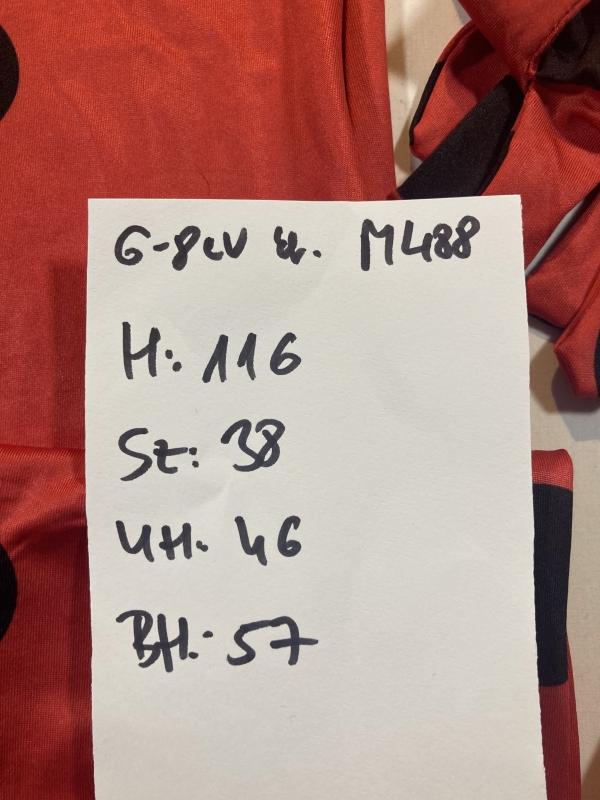 6-8 év M488
H: 116
Sz: 38
UH: 46
BH: 57